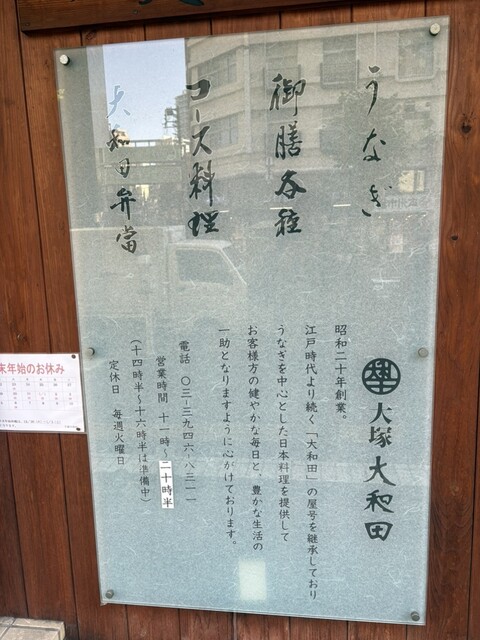 うなぎ
御膳各種
コース料理
大和田弁當
大塚大和田
昭和二十年創業。
江戸時代より続く「大和田」の屋号を継承しており
うなぎを中心とした日本料理を提供して
お客様方の健やかな毎日と、豊かな生活の
一助となりますように心がけております。
電話 〇三ー三九四六ー八三一一
営業時間 十一時〜二十時半
(十四時半〜十六時半は準備中)
定休日 毎週火曜日
末年始のお休み